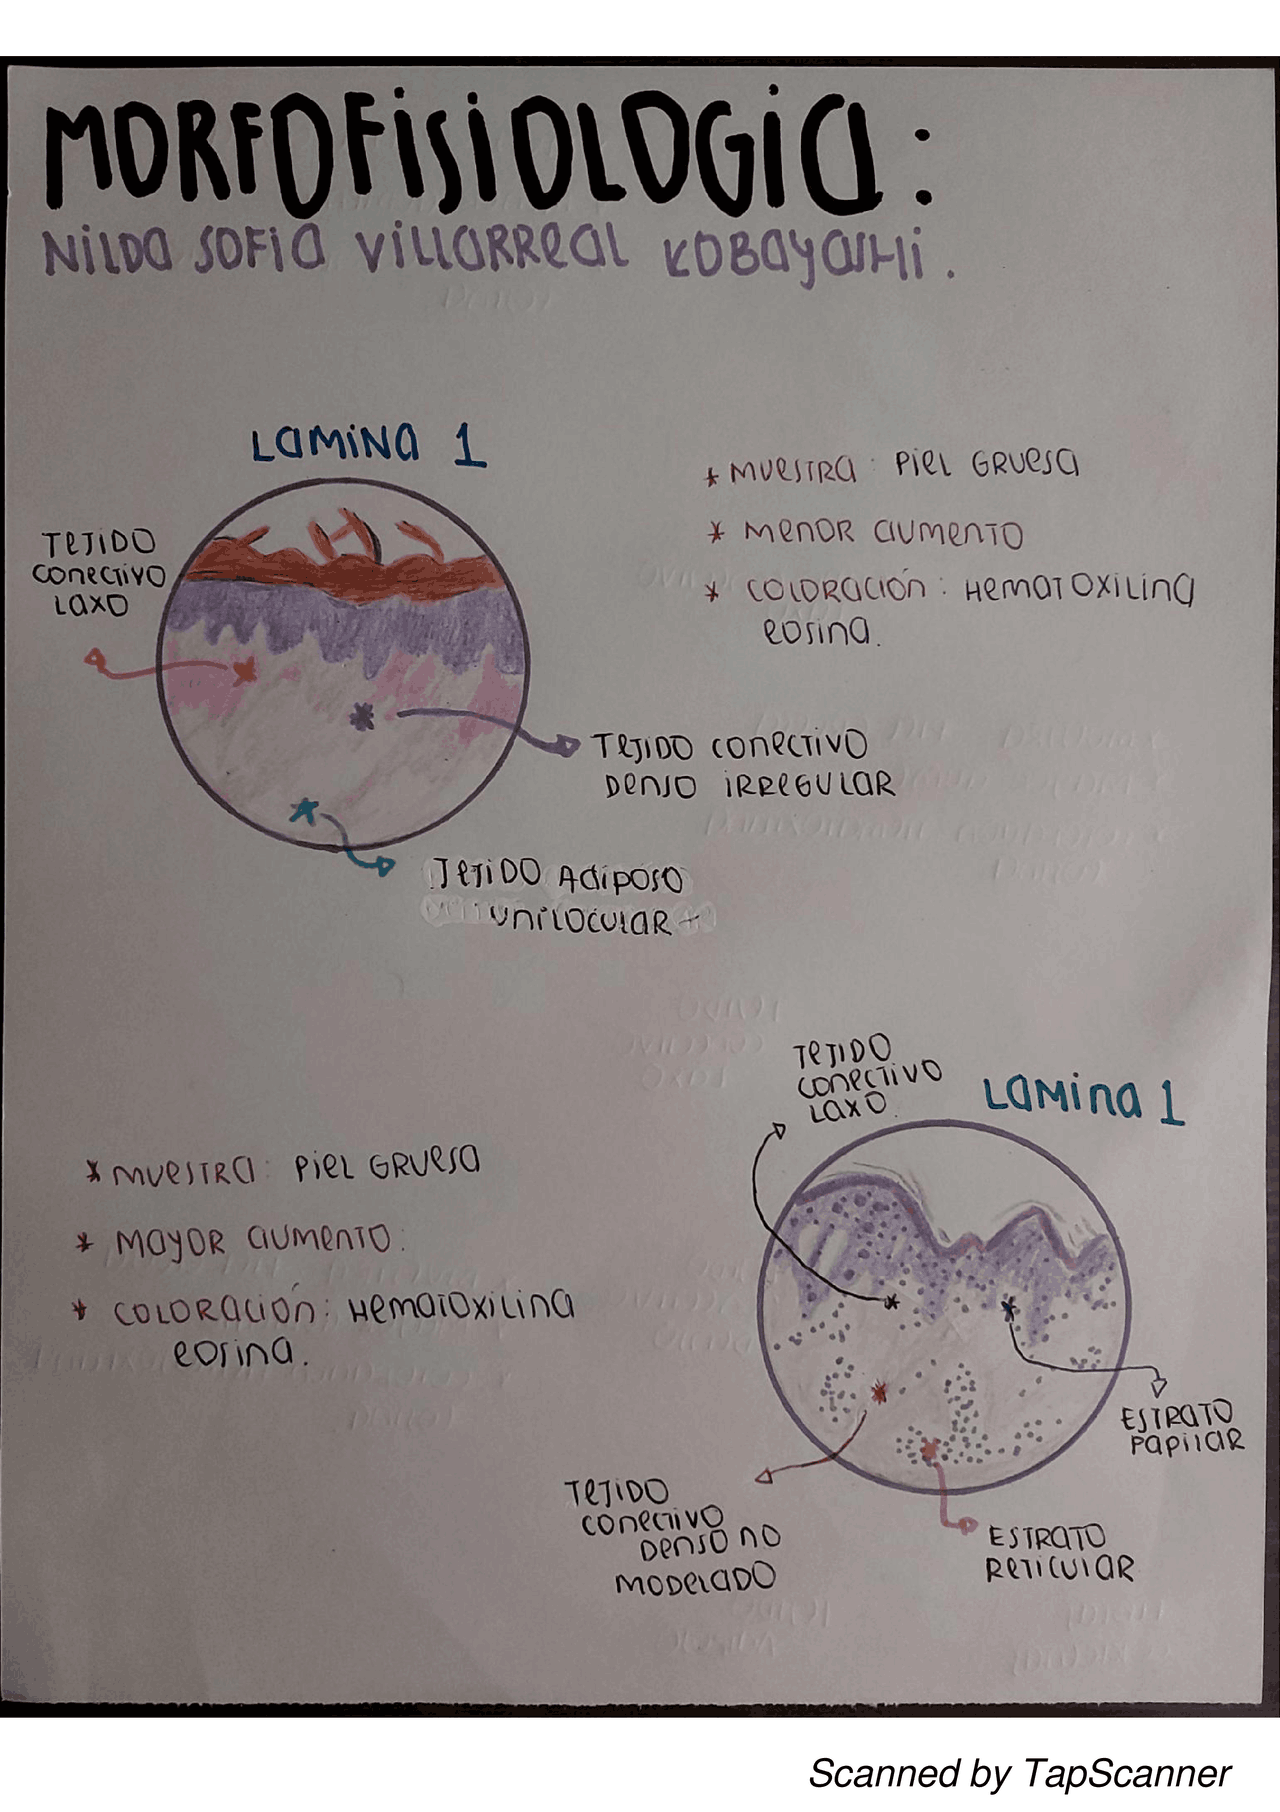 MORFOFISIOLOGIA:
NILDA SOFIA VILLARREAL KOBAYASHI.
LAMINA 1
TEJIDO
CONECTIVO
LAXO
* MUESTRA: PIEL GRUESA
* MENOR AUMENTO
* COLORACIÓN: HEMATOXILINA
EOSINA.
TEJIDO CONECTIVO
DENSO IRREGULAR
TEJIDO ADIPOSO
UNILOCULAR
TEJIDO
CONECTIVO
LAXO.
LAMINA 1
* MUESTRA: PIEL GRUESA
* MAYOR AUMENTO:
* COLORACIÓN: HEMATOXILINA
EOSINA.
ESTRATO
PAPILAR
TEJIDO
CONECTIVO
DENSO NO
MODELADO
ESTRATO
RETICULAR
Scanned by TapScanner